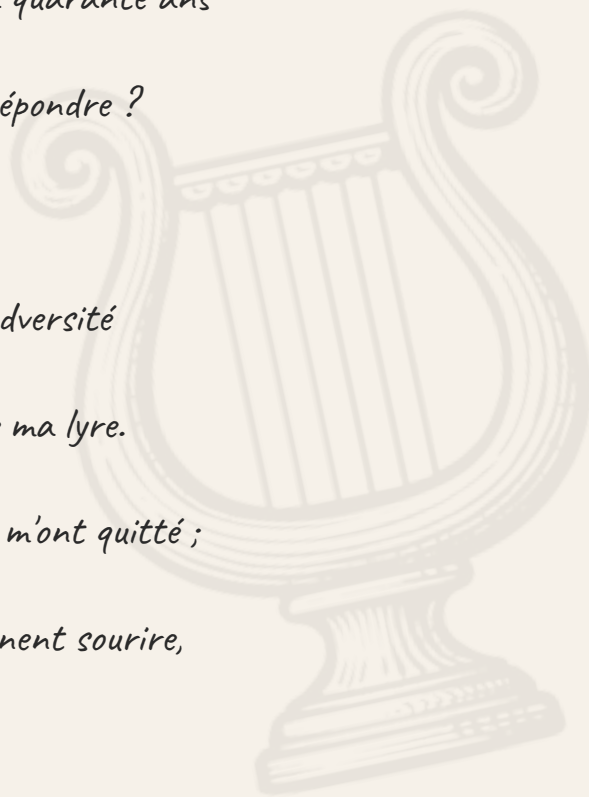 quarante ans
épondre ?
dversité
ma lyre.
m'ont quitté ;
nent sourire,